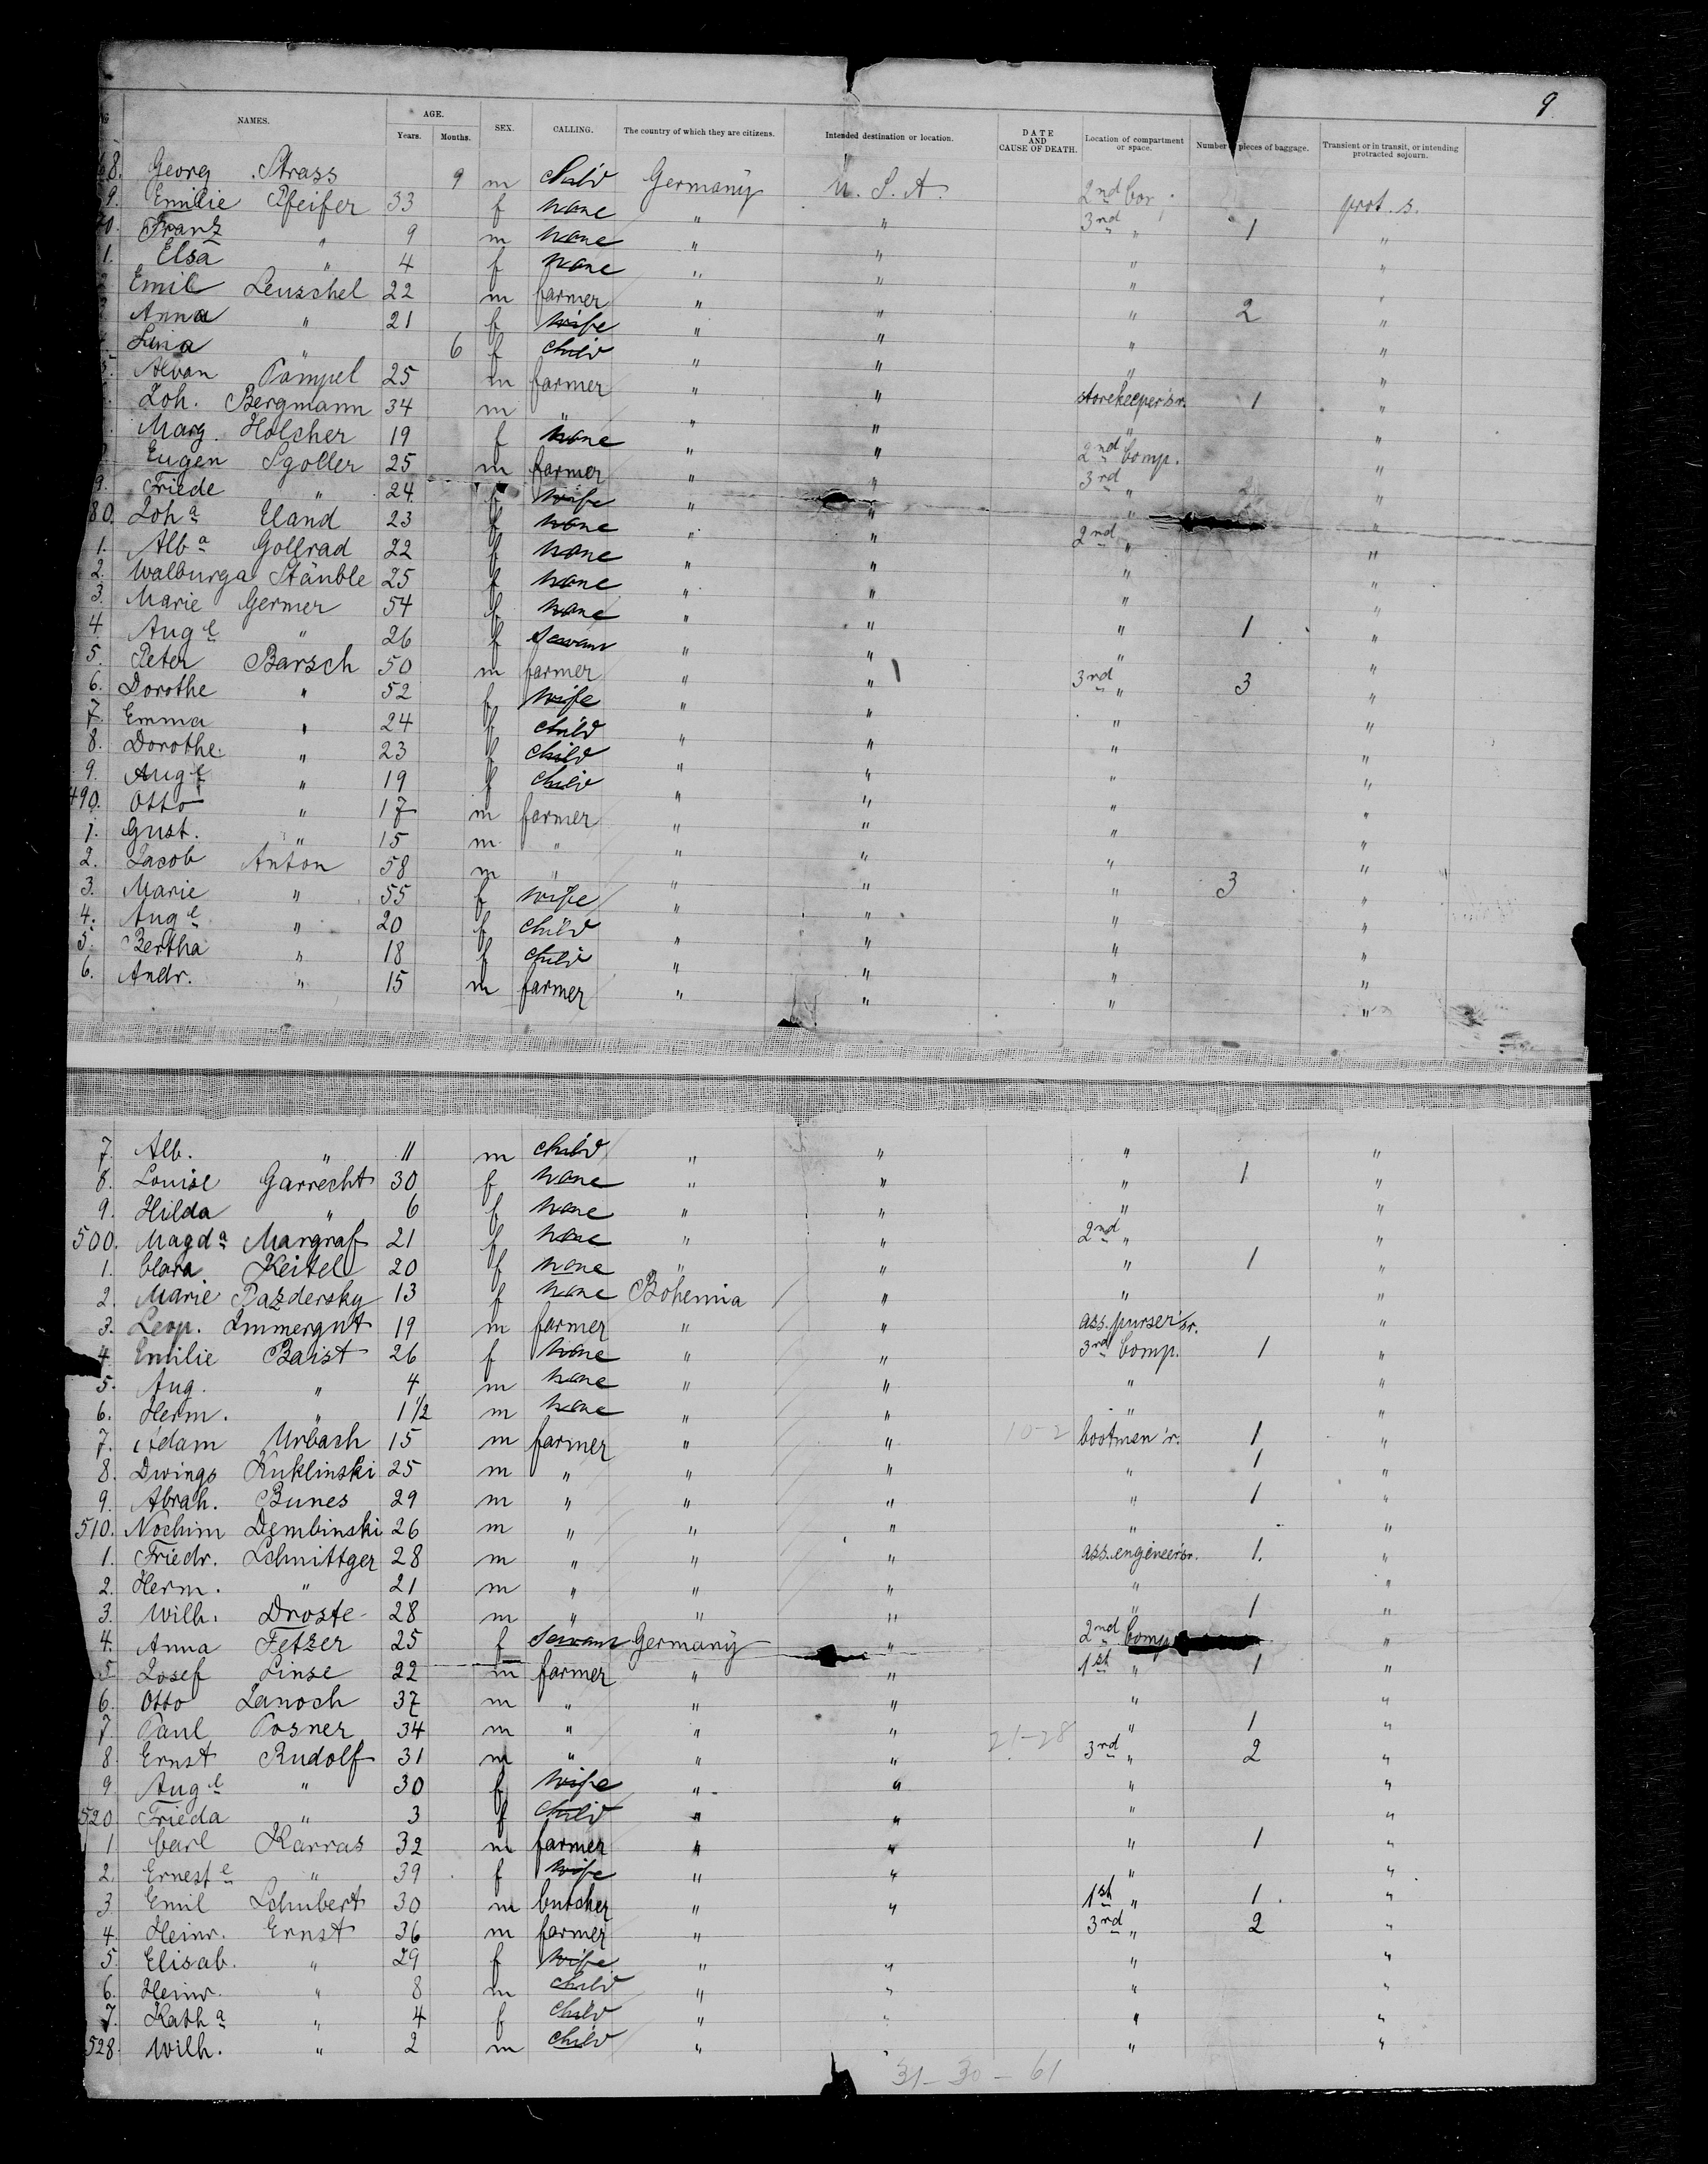 9
No NAMES. AGE. Years. Months. SEX. CALLING. The country of which they are citizens. Intended destination or location. DATE AND CAUSE OF DEATH. Location of compartment or space. Number pieces of baggage. Transient or in transit, or intending protracted sojourn.
68. Georg Strass 9 m child Germany U. S. A. 2nd Com. prot. s.
9. Emilie Pfeifer 33 f none " " 3rd " 1 "
70. Franz " 9 m none " " " "
1. Elsa " 4 f none " " " "
2. Emil Leuschel 22 m farmer " " " 2 "
3. Anna " 21 f wife " " " "
4. Lina " 6 f child " " " "
5. Alvan Pampel 25 m farmer " " storekeeper's r. 1 "
6. Joh. Bergmann 34 m " " " " "
7. Marg. Holscher 19 f none " " 2nd Comp. "
8. Eugen Sgoller 25 m farmer " " 3rd " "
9. Friede " 24 f wife " " " "
80. Joha Eland 23 f none " " 2nd " "
1. Alba Gollrad 22 f none " " " "
2. Walburga Stäuble 25 f none " " " "
3. Marie Germer 54 f none " " " 1 "
4. Auge " 26 f servant " " " "
5. Peter Barsch 50 m farmer " " 3rd " 3 "
6. Dorothe " 52 f wife " " " "
7. Emma " 24 f child " " " "
8. Dorothe. " 23 f child " " " "
9. Auge " 19 f child " " " "
490. Otto " 17 m farmer " " " "
1. Gust. " 15 m " " " " "
2. Jacob Anton 58 m " " " " 3 "
3. Marie " 55 f wife " " " "
4. Auge " 20 f child " " " "
5. Bertha " 18 f child " " " "
6. Andr. " 15 m farmer " " " "
7. Alb. " 11 m child " " " "
8. Louise Garrecht 30 f none " " " 1 "
9. Hilda " 6 f none " " " "
500. Magda Margraf 21 f none " " 2nd " "
1. Clara Keitel 20 f none " " " 1 "
2. Marie Pazdersky 13 f none Bohemia " " "
3. Leop. Immergut 19 m farmer " " ass. purser's r. "
4. Emilie Baist 26 f none " " 3rd Comp. 1 "
5. Aug. " 4 m none " " " "
6. Herm. " 1 1/2 m none " " " "
7. Adam Urbach 15 m farmer " " 10-2 bootmen 'r. 1 "
8. Dwings Kuklinski 25 m " " " " 1 "
9. Abrah. Bunes 29 m " " " " 1 "
510. Nochim Dembinski 26 m " " " " "
1. Friedr. Schmittger 28 m " " " ass. engineer's r. 1. "
2. Herm. " 21 m " " " " "
3. Wilh. Droste 28 m " " " " 1 "
4. Anna Fetzer 25 f servant Germany " 2nd Comp. "
5 Josef Linse 22 m farmer " " 1st " 1 "
6. Otto Janoch 37 m " " " " "
7 Paul Posner 34 m " " " 21-28 " 1 "
8 Ernst Rudolf 31 m " " " 3rd " 2 "
9. Auge " 30 f wife " " " "
520 Frieda " 3 f child " " " "
1 Carl Karras 32 m farmer " " " 1 "
2. Erneste " 39 f wife " " " "
3 Emil Schubert 30 m butcher " " 1st " 1 "
4. Heinr. Ernst 36 m farmer " 3rd " 2 "
5. Elisab. " 29 f wife " " " "
6. Heinr. " 8 m child " " " "
7. Katha " 4 f child " " " "
528. Wilh. " 2 m child " " " "
31-30-61